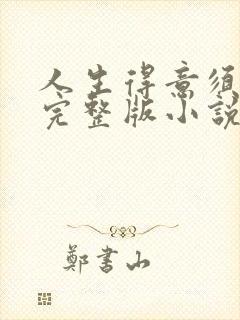 人生得意須
完整版小說
鄭書山